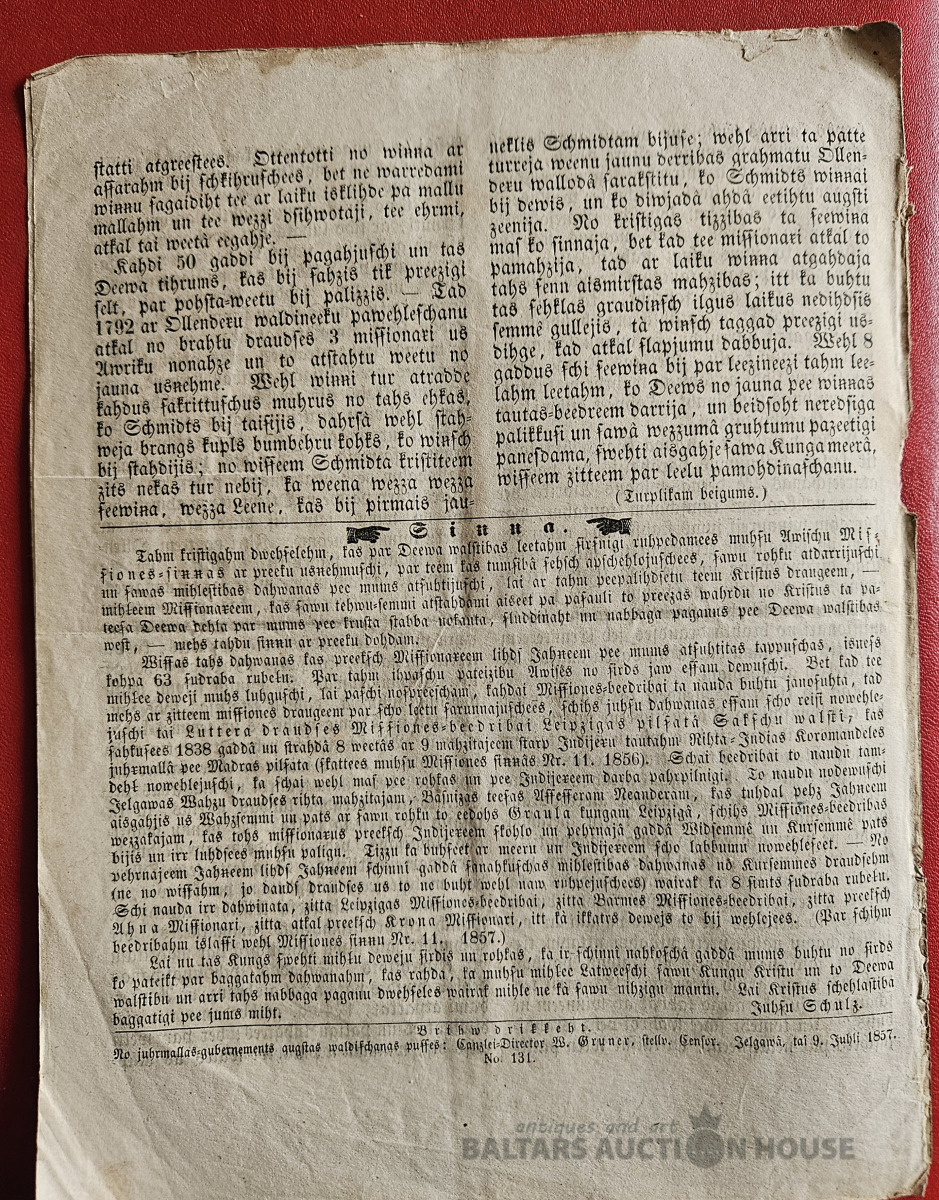 ſtatti atgreeſtees. Ottentotti no winna ar
aſſarahm bij ſchkihruſchees, bet ne warredami
winnu ſagaidiht tee ar laiku isklihde pa mallu
mallahm un tee wezzi dſihwotaji, tee ehrmi,
atkal tai weetâ eegahje. —
Kahdi 50 gaddi bij pagahjuſchi un tas
Deewa tihrums, kas bij ſahzis tik preezigi
ſelt, par pohſta-weetu bij palizzis. — Tad
1792 ar Ollenderu waldineeku pawehleſchanu
atkal no brahļu draudſes 3 miſſionari us
Awriku nonahze un to atſtahtu weetu no
jauna usņehme. Wehl winni tur atradde
kahdus ſakrittuſchus muhrus no tahs ehkas,
ko Schmidts bij taiſijis, dahrſâ wehl ſtah-
weja brangs kupls bumbehru kohks, ko winſch
bij ſtahdijis; no wiſſeem Schmidta kriſtiteem
zits nekas tur nebij, ka weena wezza wezza
ſeewina, wezza Leene, kas bij pirmais jau-
neklis Schmidtam bijuſe; wehl arri ta patte
turreja weenu jaunu derribas grahmatu Ollen-
deru wallodâ ſarakſtitu, ko Schmidts winnai
bij dewis, un ko diwjadâ ahdâ eetihtu augſti
zeenija. No kriſtigas tizzibas ta ſeewina
maſ ko ſinnaja, bet kad tee miſſionari atkal to
pamahzija, tad ar laiku winna atgahdaja
tahs ſenn aismirſtas mahzibas; itt ka buhtu
tas ſehklas graudinſch ilgus laikus nedihdſis
ſemmê gullejis, tà winſch taggad preezigi us-
dihge, kad atkal ſlapjumu dabbuja. Wehl 8
gaddus ſchi ſeewina bij par leezineezi tahm lee-
lahm leetahm, ko Deews no jauna pee winnas
tautas-beedreem darrija, un beidſoht neredſiga
palikkuſi un ſawâ wezzumâ gruhtumu pazeetigi
paneſdama, ſwehti aisgahje ſawa Kunga meerâ,
wiſſeem zitteem par leelu pamohdinaſchanu.
(Turplikam beigums.)
Sinna.
Tahm kriſtigahm dwehſelehm, kas par Deewa walſtibas leetahm ſirſnigi ruhpedamees muhſu Awiſchu Miſ-
ſiones-ſinnas ar preeku usņehmuſchi, par teem kas tumſibâ ſehſch apſchehlojuſchees, ſawu rohku atdarrijuſchi
un ſawas mihleſtibas dahwanas pee mums atſuhtijuſchi, lai ar tahm peepalihdſetu teem Kriſtus draugeem, —
mihleem Miſſionareem, kas ſawu tehwu-ſemmi atſtahdami aiseet pa paſauli to preezas wahrdu no Kriſtus ta pa-
teeſa Deewa dehla par mums pee kruſta ſtabba nokauta, ſluddinaht un nabbaga paganus pee Deewa walſtibas
weſt, — mehs tahdu ſinnu ar preeku dohdam.
Wiſſas tahs dahwanas kas preekſch Miſſionareem lihdſ Jahneem pee mums atſuhtitas tappuſchas, isneſs
kohpa 63 ſudraba rubeļu. Par tahm ihpaſchu pateizibu Awiſês no ſirds jaw eſſam dewuſchi. Bet kad tee
mihlee deweji muhs luhguſchi, lai paſchi noſpreeſcham, kahdai Miſſiones-beedribai ta nauda buhtu janoſuhta, tad
mehs ar zitteem miſſiones draugeem par ſcho leetu ſarunnajuſchees, ſchihs juhſu dahwanas eſſam ſcho reiſi nowehle-
juſchi tai Luttera draudſes Miſſiones-beedribai Leipzigas pilſatâ Sakſchu walſti, kas
ſahkuſees 1838 gaddâ un ſtrahdâ 8 weetâs ar 9 mahzitajeem ſtarp Indijeru tautahm Rihta-Indias Koromandeles
juhrmallâ pee Madras pilſata (ſkattees muhſu Miſſiones ſinnâs Nr. 11. 1856). Schai beedribai to naudu tam-
dehļ nowehlejuſchi, ka ſchai wehl maſ pee rohkas un pee Indijereem darba pahrpilnigi. To naudu nodewuſchi
Jelgawas Wahzu draudſes rihta mahzitajam, Baſnizas teeſas Aſſeſſeram Neanderam, kas tuhdal pehz Jahneem
aisgahjis us Wahzſemmi un pats ar ſawu rohku to eedohs Graula kungam Leipzigâ, ſchihs Miſſiones-beedribas
wezzakajam, kas tohs miſſionarus preekſch Indijereem ſkohlo un pehrnajâ gaddâ Widſemmê un Kurſemmê pats
bijis un irr luhdſees muhſu paligu. Tizzu ka buhſeet ar meeru un Indijereem ſcho labbumu nowehleſeet. — No
pehrnajeem Jahneem lihdſ Jahneem ſchinni gaddâ ſanahkuſchas mihleſtibas dahwanas no Kurſemmes draudſehm
(ne no wiſſahm, jo daudſ draudſes us to ne buht wehl naw ruhpejuſchees) wairak kà 8 ſimts ſudraba rubeļu.
Schi nauda irr dahwinata, zitta Leipzigas Miſſiones-beedribai, zitta Barmes Miſſiones-beedribai, zitta preekſch
Ahna Miſſionari, zitta atkal preekſch Krona Miſſionari, itt kà ikkatrs dewejs to bij wehlejees. (Par ſchihm
beedribahm islaſſi wehl Miſſiones ſinnu Nr. 11. 1857.)
Lai nu tas Kungs ſwehti mihļu deweju ſirdis un rohkas, ka ir ſchinnî nahkoſchâ gaddâ mums buhtu no ſirds
ko pateikt par baggatahm dahwanahm, kas rahda, ka muhſu mihlee Latweeſchi ſawu Kungu Kriſtu un to Deewa
walſtibu un arri tahs nabbaga paganu dwehſeles wairak mihle ne kà ſawu nihzigu mantu. Lai Kriſtus ſchehlaſtiba
baggatigi pee jums miht. Juhſu Schulz.
Brihw drikkeht.
No juhrmallas-gubernements augſtas waldiſchanas puſſes: Canzlei-Director W. Gruner, ſtellv. Cenſor. Jelgawâ, tai 9. Juhli 1857.
No. 131.
antiques and art
BALTARS AUCTION HOUSE